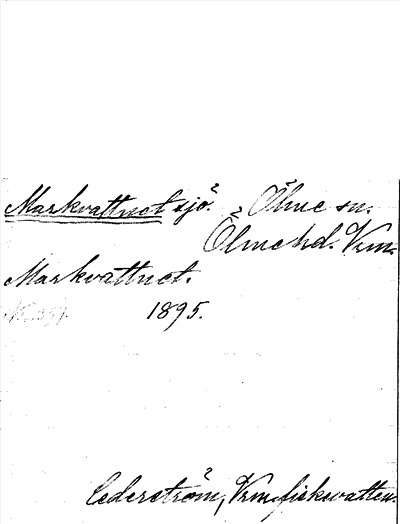 Markvattnet sjö. Ölme sn.
Ölme hd. Vrm.
Markvattnet.
1895.
Cederström, Vrm. fiskevatten.